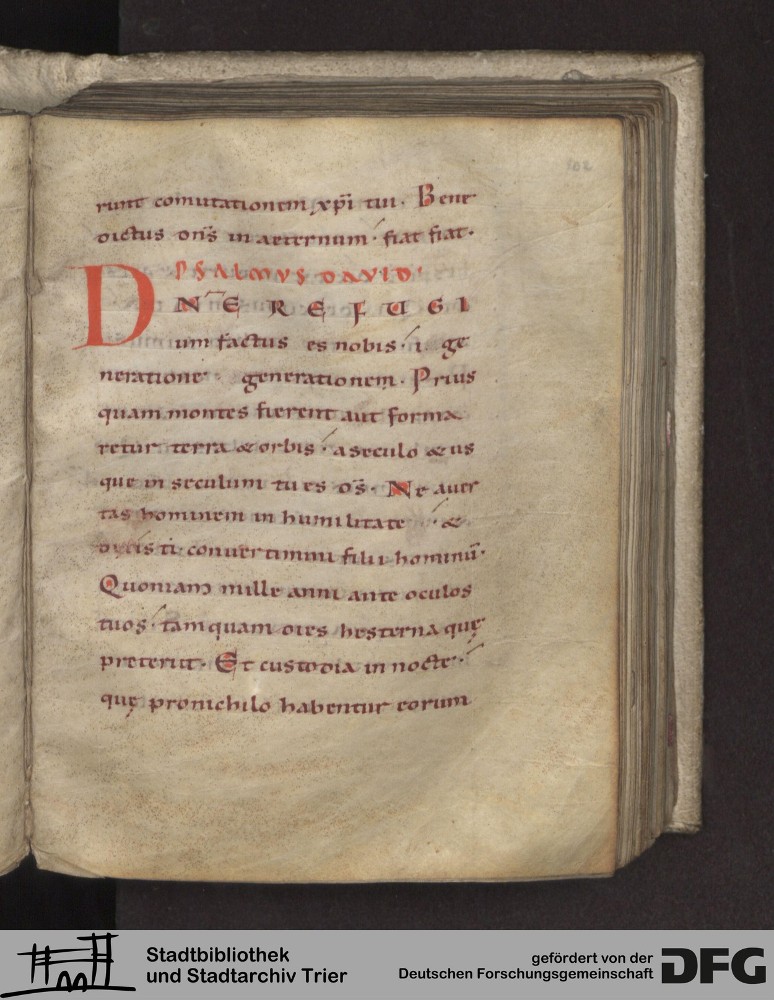 102
runt comutationem xp̄i tui. Bene
dictus dn̄s in aeternum. fiat fiat.
PSALMVS DAVID.
DN̄E REFUGI
um factus es nobis. i ge
neratione generationem. Prius
quam montes fierent aut forma
retur terra & orbis. a seculo & us
que in seculum tu es ds̄. Ne auer
tas hominem in humilitate. &
dixisti conuertimini filii hominū.
Quoniam mille anni ante oculos
tuos. tamquam dies hesterna quę
preteriit. Et custodia in nocte.
quę pro nichilo habentur eorum
Stadtbibliothek
und Stadtarchiv Trier
gefördert von der
Deutschen Forschungsgemeinschaft
DFG